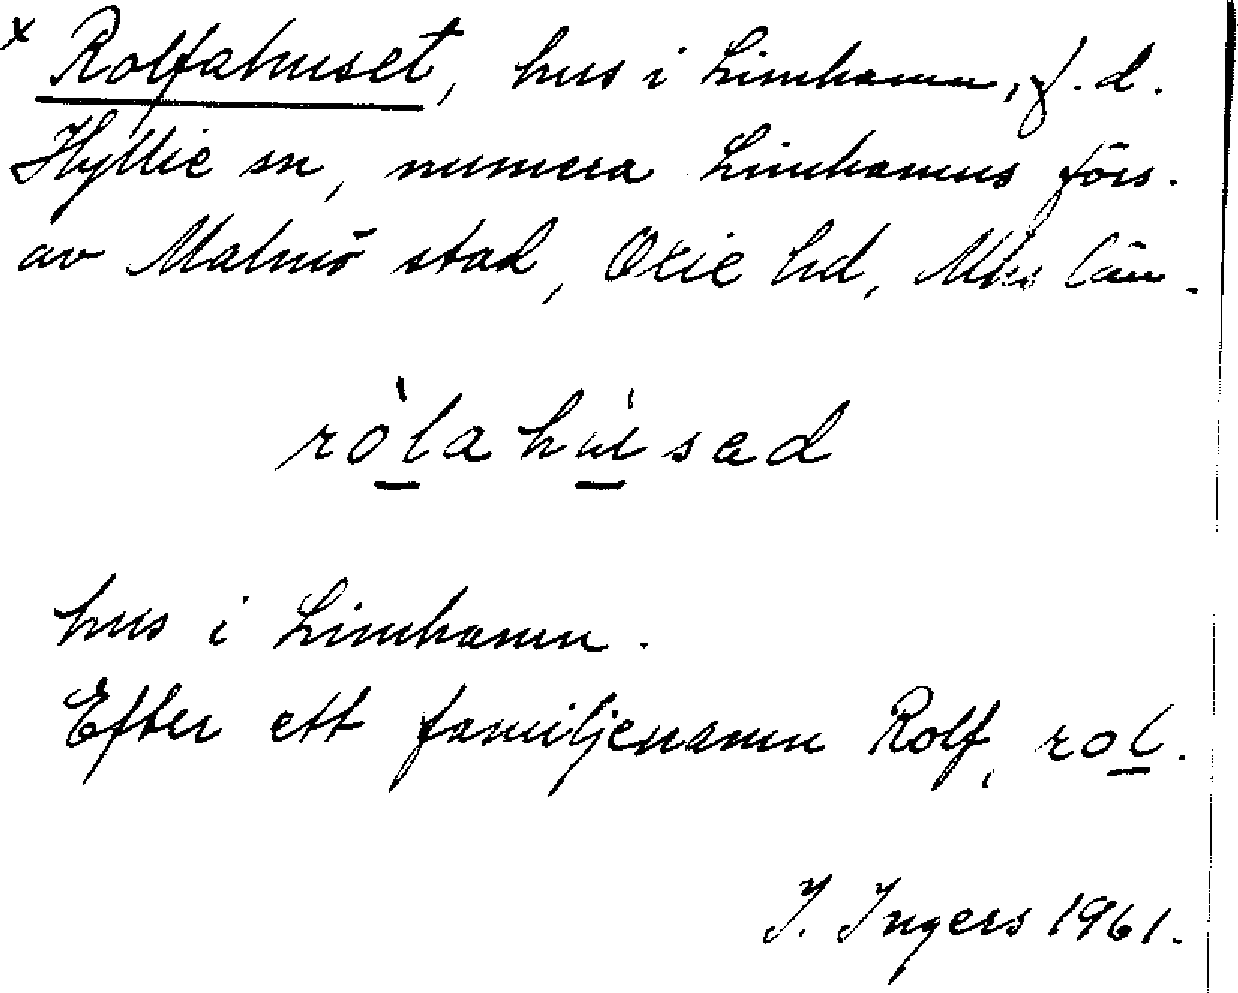 x Rolfahuset, hus i Limhamn, f.d.
Hyllie sn, numera Limhamns förs.
av Malmö stad, Oxie hd, Mhs län.
ròlahúsad
hus i Limhamn.
Efter ett familjenamn Rolf, rol.
I. Ingers 1961.